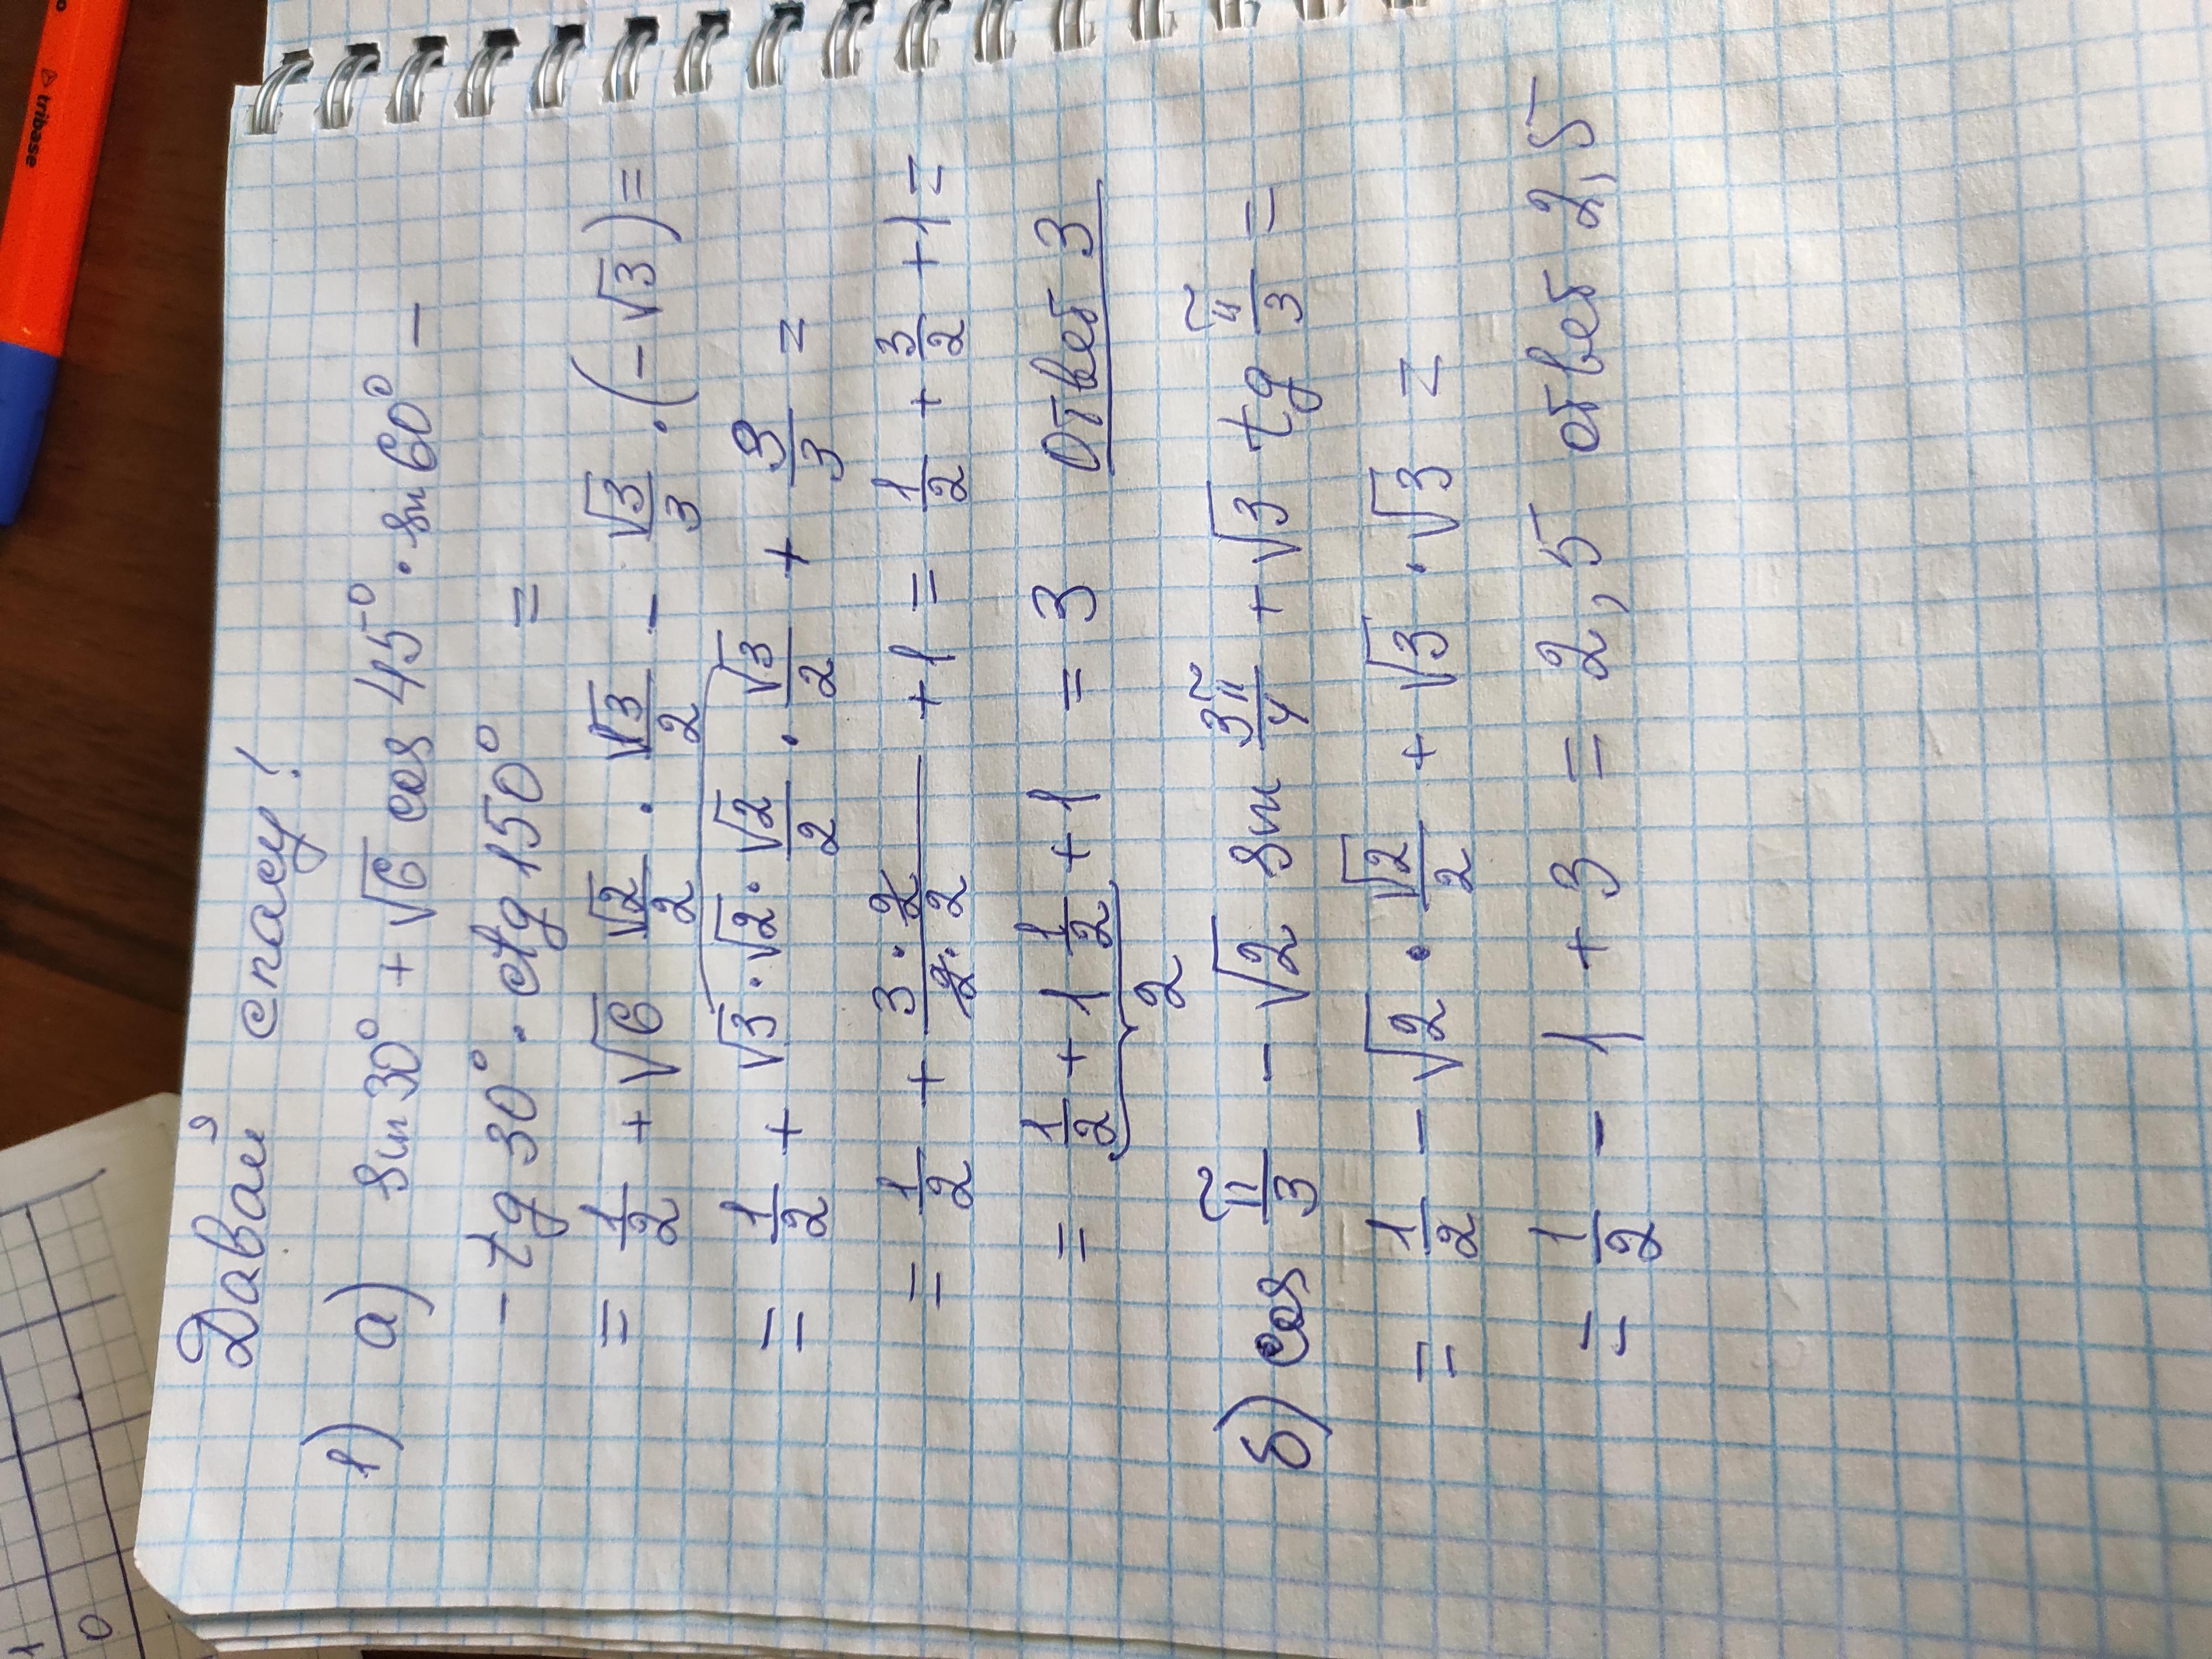 Давай спасу!
1) а) sin 30° + √6 cos 45° · sin 60° –
– tg 30° · ctg 150° =
= 1/2 + √6 √2/2 · √3/2 – √3/3 · (–√3) =
= 1/2 + √3 · √2 · √2/2 · √3/2 + 3/3 =
= 1/2 + 3·2/2·2 + 1 = 1/2 + 3/2 + 1 =
= 1/2 + 1 1/2 + 1 = 3 Ответ 3
2
б) cos π/3 – √2 sin 3π/4 + √3 tg π/3 =
= 1/2 – √2 · √2/2 + √3 · √3 =
= 1/2 – 1 + 3 = 2,5 ответ 2,5
tribase
1
0